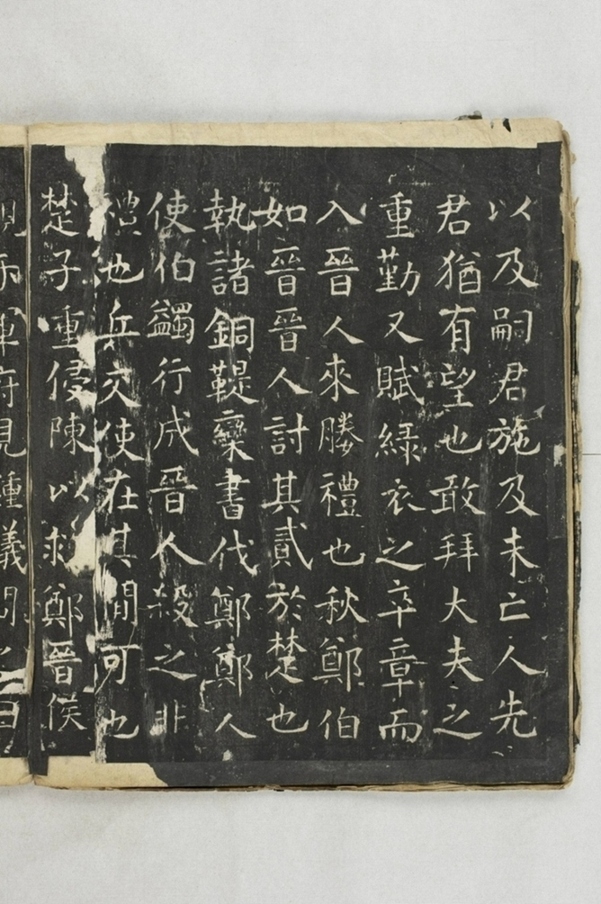 以及嗣君施及未亡人先
君猶有望也敢拜大夫之
重勤又賦綠衣之卒章而
入晉人來媵禮也秋鄭伯
如晉晉人討其貳於楚也
執諸銅鞮欒書伐鄭鄭人
使伯蠲行成晉人殺之非
禮也兵交使在其間可也
楚子重侵陳以救鄭晉侯
觀于軍府見鍾儀問之曰